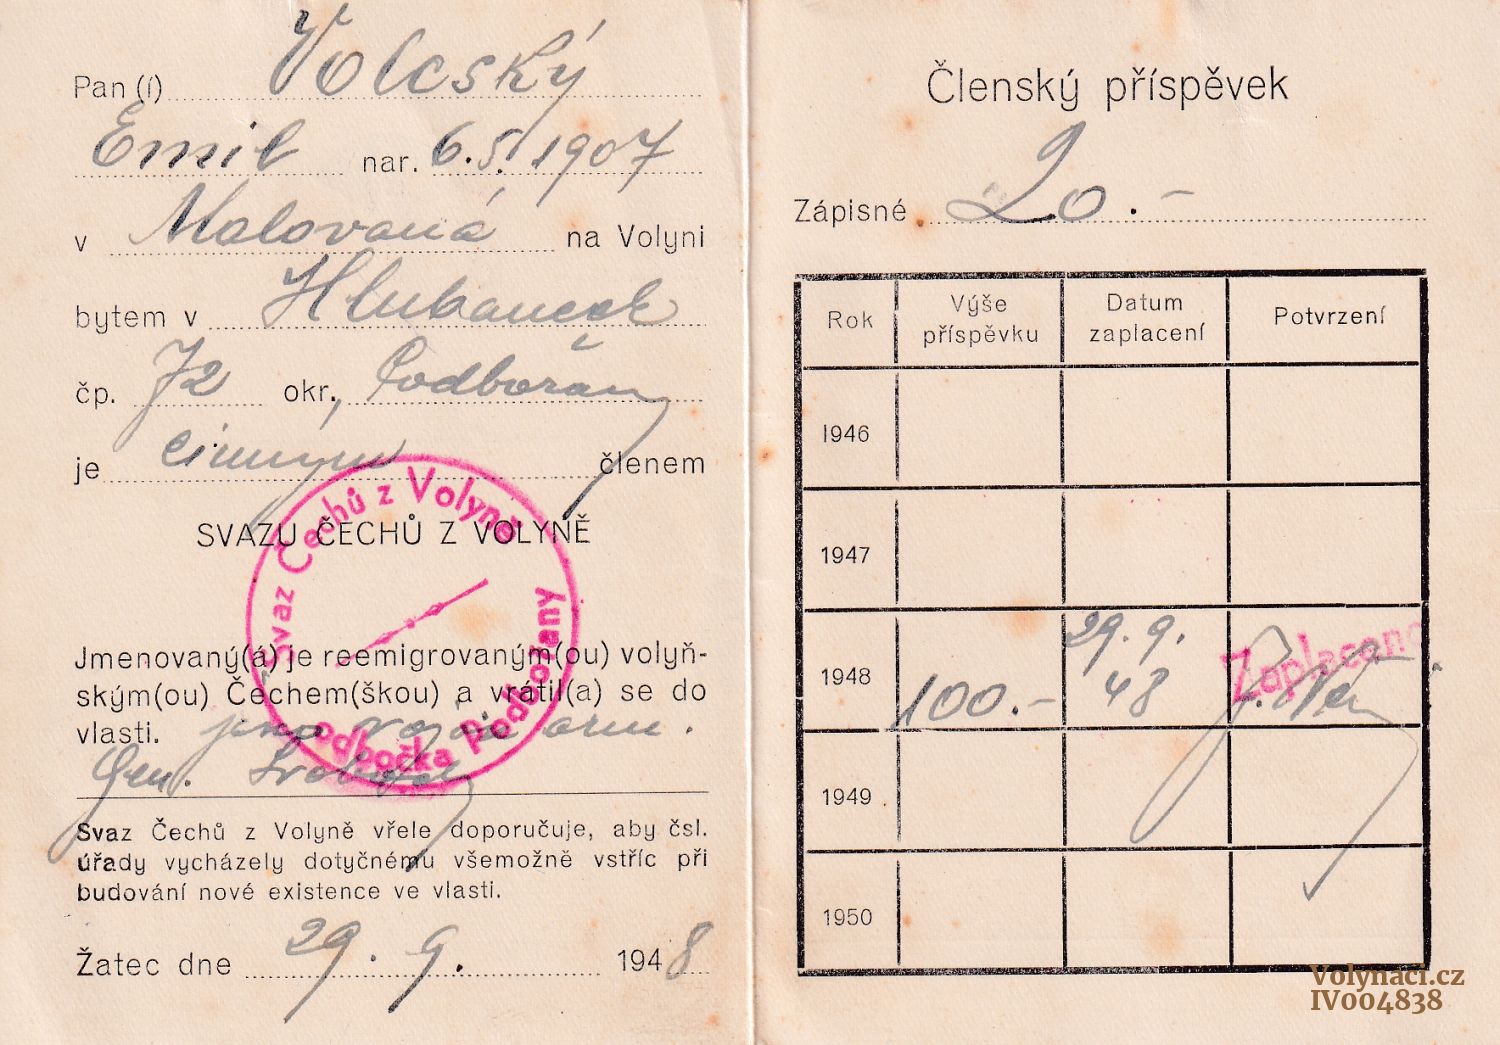 Pan (í) Volcský
Emil nar. 6.5. 1907
v Malovaná na Volyni
bytem v
čp. 72 okr. Podbořany
je činným členem
SVAZU ČECHŮ Z VOLYNĚ
Svaz Čechů z Volyně
Odbočka Podbořany
Jmenovaný(á) je reemigrovaným(ou) volyň-
ským(ou) Čechem(škou) a vrátil(a) se do
vlasti. jako voják arm.
Gen. Svobody
Svaz Čechů z Volyně vřele doporučuje, aby čsl.
úřady vycházely dotyčnému všemožně vstříc při
budování nové existence ve vlasti.
Žatec dne 29. 9. 1948
Členský příspěvek
Zápisné 20.-
Rok Výše příspěvku Datum zaplacení Potvrzení
1946
1947
1948 100.- 29. 9. 48 Zaplaceno
1949
1950
Volynaci.cz
IV004838